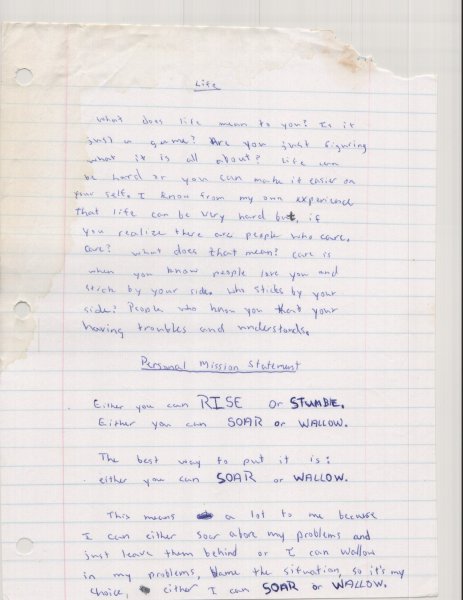 Life
What does life mean to you? Is it
just a game? Are you just figuring
what it is all about? Life can
be hard or you can make it easier on
your self. I know from my own experience
that life can be very hard but, if
you realize there are people who care.
Care? What does that mean? Care is
when you know people love you and
stick by your side. Who sticks by your
side? People who know you that your
having troubles and understands.
Personal Mission Statement
Either you can RISE or STUMBLE.
Either you can SOAR or WALLOW.
The best way to put it is:
either you can SOAR or WALLOW.
This means a lot to me because
I can either soar above my problems and
just leave them behind or I can wallow
in my problems, blame the situation, so it's my
choice, either I can SOAR or WALLOW.